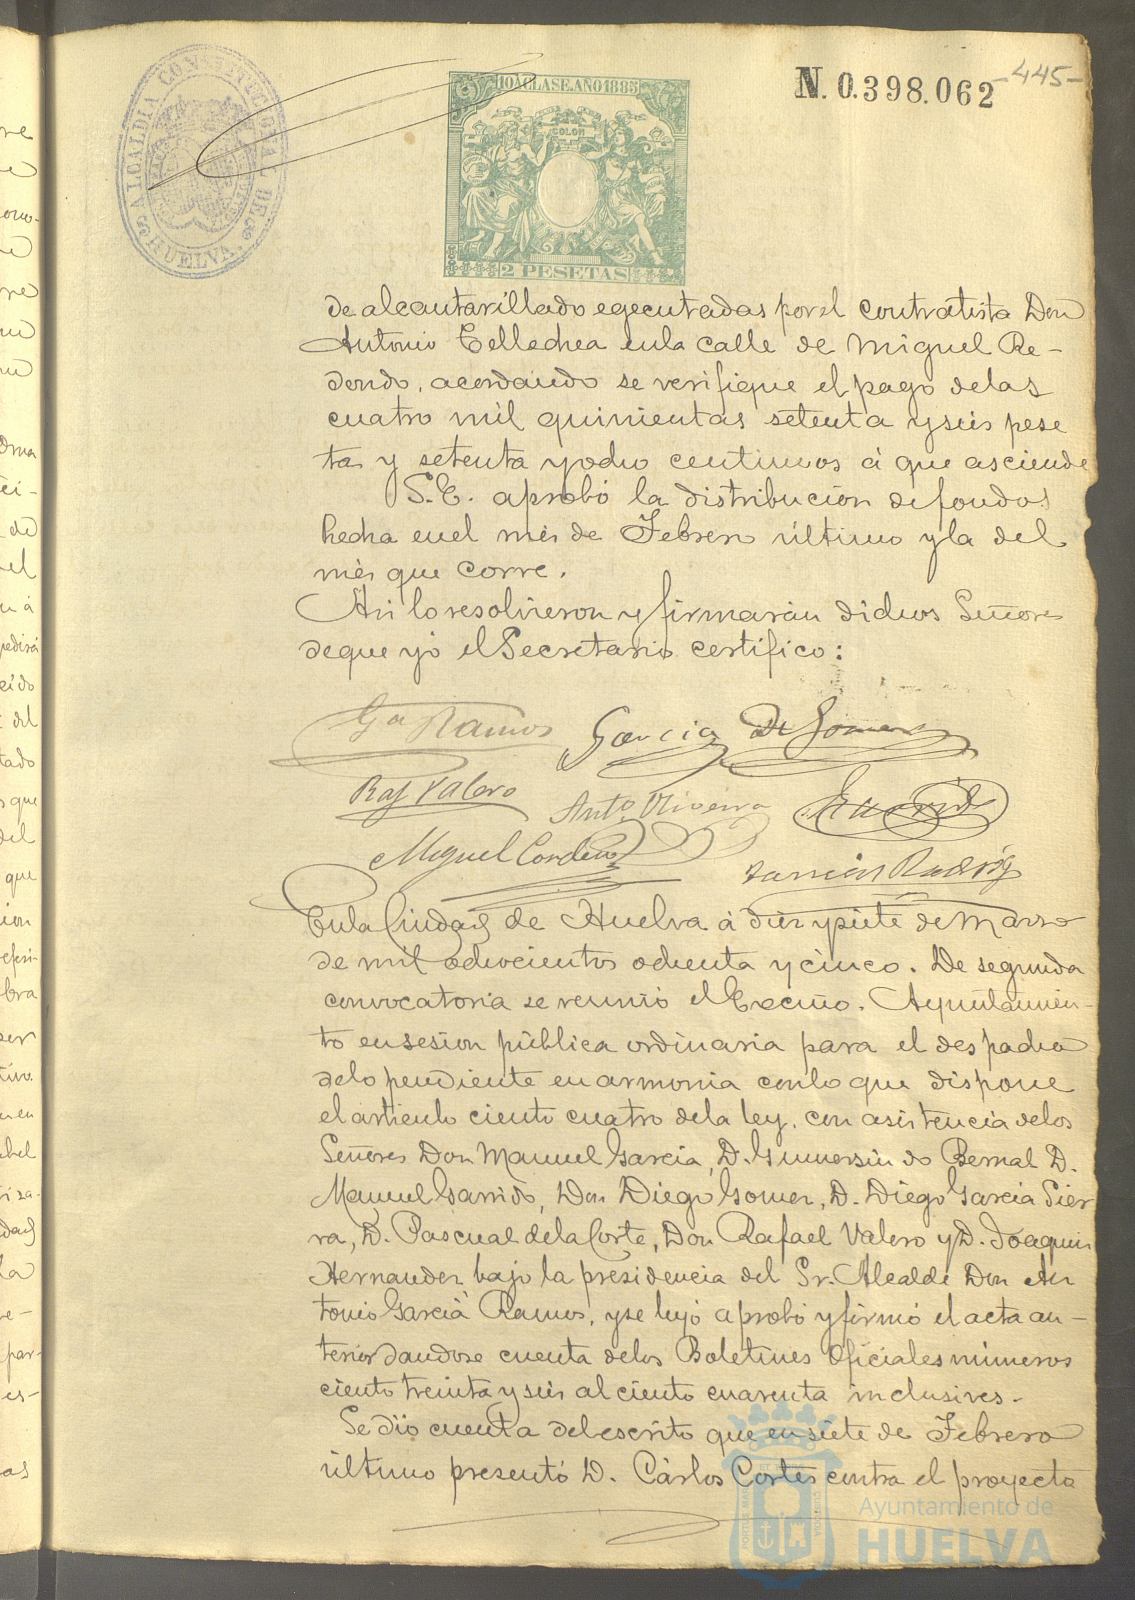 ALCALDIA CONSTITUCIONAL DE HUELVA.
10ª CLASE. AÑO 1885
COLON
2 PESETAS
N. 0.398.062
-445-
de alcantarillado egecutadas por el contratista Don
Antonio Tellechea en la calle de Miguel Re-
dondo, acordando se verifique el pago de las
cuatro mil quinientas setenta y seis pese
tas y setenta y ocho centimos á que asciende
S.E. aprobó la distribucion de fondos
hecha en el mes de Febrero último y la del
mes que corre.
Asi lo resolvieron y firmarán dichos Señores
de que yo el Secretario certifico:
Gª Ramos
Garcia
De Gomez
Raf Valero
Antº Oliveira
Garrido
Miguel Cordero
En la Ciudad de Huelva á diez y siete de Marzo
de mil ochocientos ochenta y cinco. De segunda
convocatoria se reunió el Excmo. Ayuntamien-
to en sesion pública ordinaria para el despacho
de lo pendiente en armonia con lo que dispone
el articulo ciento cuatro de la ley, con asistencia de los
Señores Don Manuel Garcia, D. Gumersindo Bernal D.
Manuel Garrido, Don Diego Gomez, D. Diego Garcia Sier
ra, D. Pascual de la Corte, Don Rafael Valero y D. Joaquin
Hernandez bajo la presidencia del Sr. Alcalde Don An
tonio Garcia Ramos, y se leyó aprobó y firmó el acta an-
terior dandose cuenta de los Boletines Oficiales números
ciento treinta y seis al ciento cuarenta inclusives.
Se dió cuenta del escrito que en siete de Febrero
último presentó D. Cárlos Cortés contra el proyecto
Ayuntamiento de
HUELVA